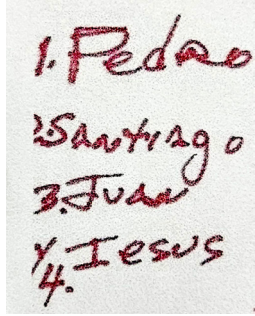 1. Pedro
2. Santiago
3. Juan
y
4. Iesus